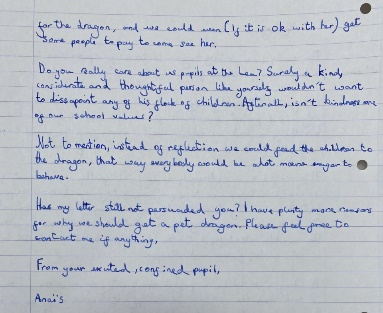 for the dragon, and we could even (if it is ok with her) get
some people to pay to come see her.
Do you really care about us pupils at the Lea? Surely a kind,
considerate and thoughtful person like yourself wouldn't want
to dissapoint any of his flock of children. Afterall, isn't kindness one
of our school values?
Not to mention, instead of reflection we could feed the children to
the dragon, that way everybody would be alot more eager to
behave.
Has my letter still not persuaded you? I have plenty more reasons
for why we should get a pet dragon. Please feel free to
contact me if anything,
From your excited, confined pupil,
Anaïs